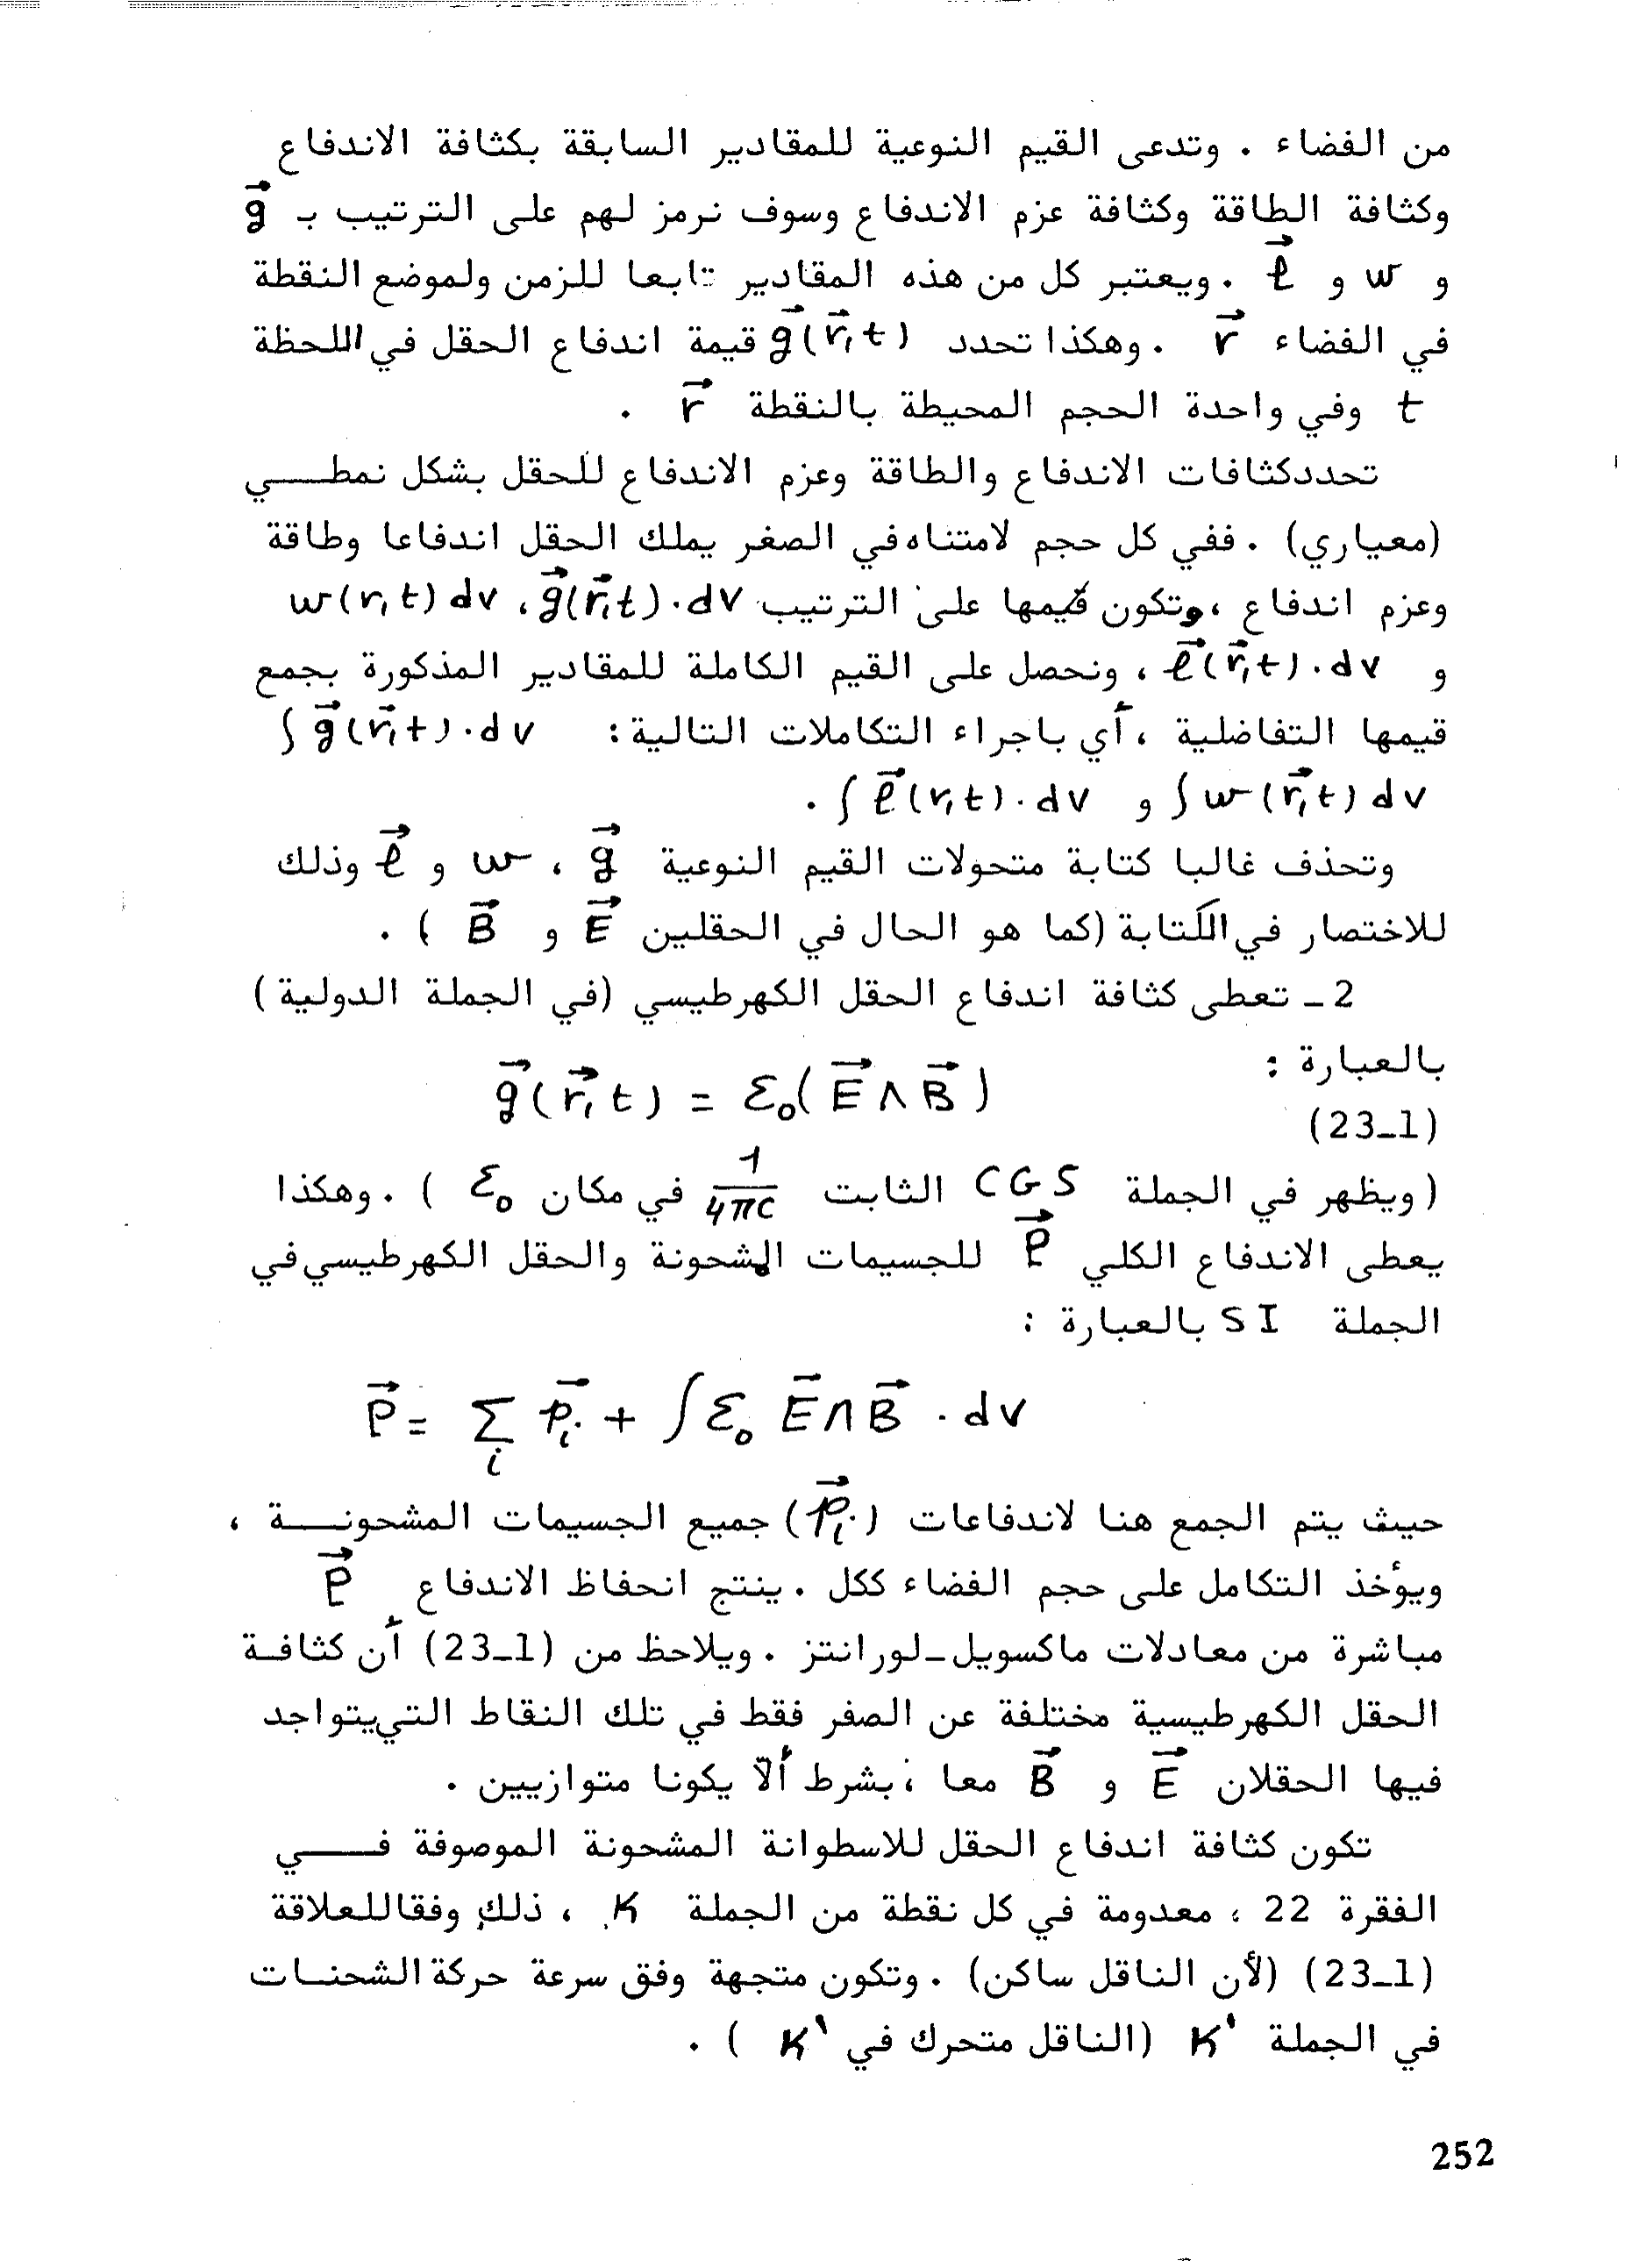 من الفضاء . وتدعى القيم النوعية للمقادير السابقة بكثافة الاندفاع
وكثافة الطاقة وكثافة عزم الاندفاع وسوف نرمز لهم على الترتيب بـ g⃗
و w و ℓ⃗ . ويعتبر كل من هذه المقادير تابعا للزمن ولموضع النقطة
في الفضاء r⃗ . وهكذا تحدد g⃗(r⃗,t) قيمة اندفاع الحقل في اللحظة
t وفي واحدة الحجم المحيطة بالنقطة r⃗ .
تحدد كثافات الاندفاع والطاقة وعزم الاندفاع للحقل بشكل نمطــي
(معياري) . ففي كل حجم لامتناه في الصغر يملك الحقل اندفاعا وطاقة
وعزم اندفاع ، وتكون قيمها على الترتيب g⃗(r⃗,t).dv ، w(r,t) dv
و ℓ⃗(r⃗,t).dv ، ونحصل على القيم الكاملة للمقادير المذكورة بجمع
قيمها التفاضلية ، أي باجراء التكاملات التالية : ∫ g⃗(r⃗,t).dv
∫ w(r⃗,t) dv و ∫ ℓ⃗(r,t).dv .
وتحذف غالبا كتابة متحولات القيم النوعية g⃗ ، w و ℓ⃗ وذلك
للاختصار في الكتابة (كما هو الحال في الحقلين E⃗ و B⃗ ) .
2 ـ تعطى كثافة اندفاع الحقل الكهرطيسي (في الجملة الدولية)
بالعبارة :
g⃗(r⃗,t) = ε₀(E⃗ ∧ B⃗)
(23_1)
(ويظهر في الجملة CGS الثابت 1/4πc في مكان ε₀ ) . وهكذا
يعطى الاندفاع الكلي P⃗ للجسيمات المشحونة والحقل الكهرطيسي في
الجملة SI بالعبارة :
P⃗ = ∑ᵢ p⃗ᵢ + ∫ ε₀ E⃗ ∧ B⃗ . dv
حيث يتم الجمع هنا لاندفاعات (p⃗ᵢ) جميع الجسيمات المشحونــة ،
ويؤخذ التكامل على حجم الفضاء ككل . ينتج انحفاظ الاندفاع P⃗
مباشرة من معادلات ماكسويل ـ لورانتز . ويلاحظ من (23_1) أن كثافـة
الحقل الكهرطيسية مختلفة عن الصفر فقط في تلك النقاط التي يتواجد
فيها الحقلان E⃗ و B⃗ معا ، بشرط ألاّ يكونا متوازيين .
تكون كثافة اندفاع الحقل للاسطوانة المشحونة الموصوفة فـــي
الفقرة 22 ، معدومة في كل نقطة من الجملة K ، ذلك وفقا للعلاقة
(23_1) (لأن الناقل ساكن) . وتكون متجهة وفق سرعة حركة الشحنـات
في الجملة K' (الناقل متحرك في K' ) .
252